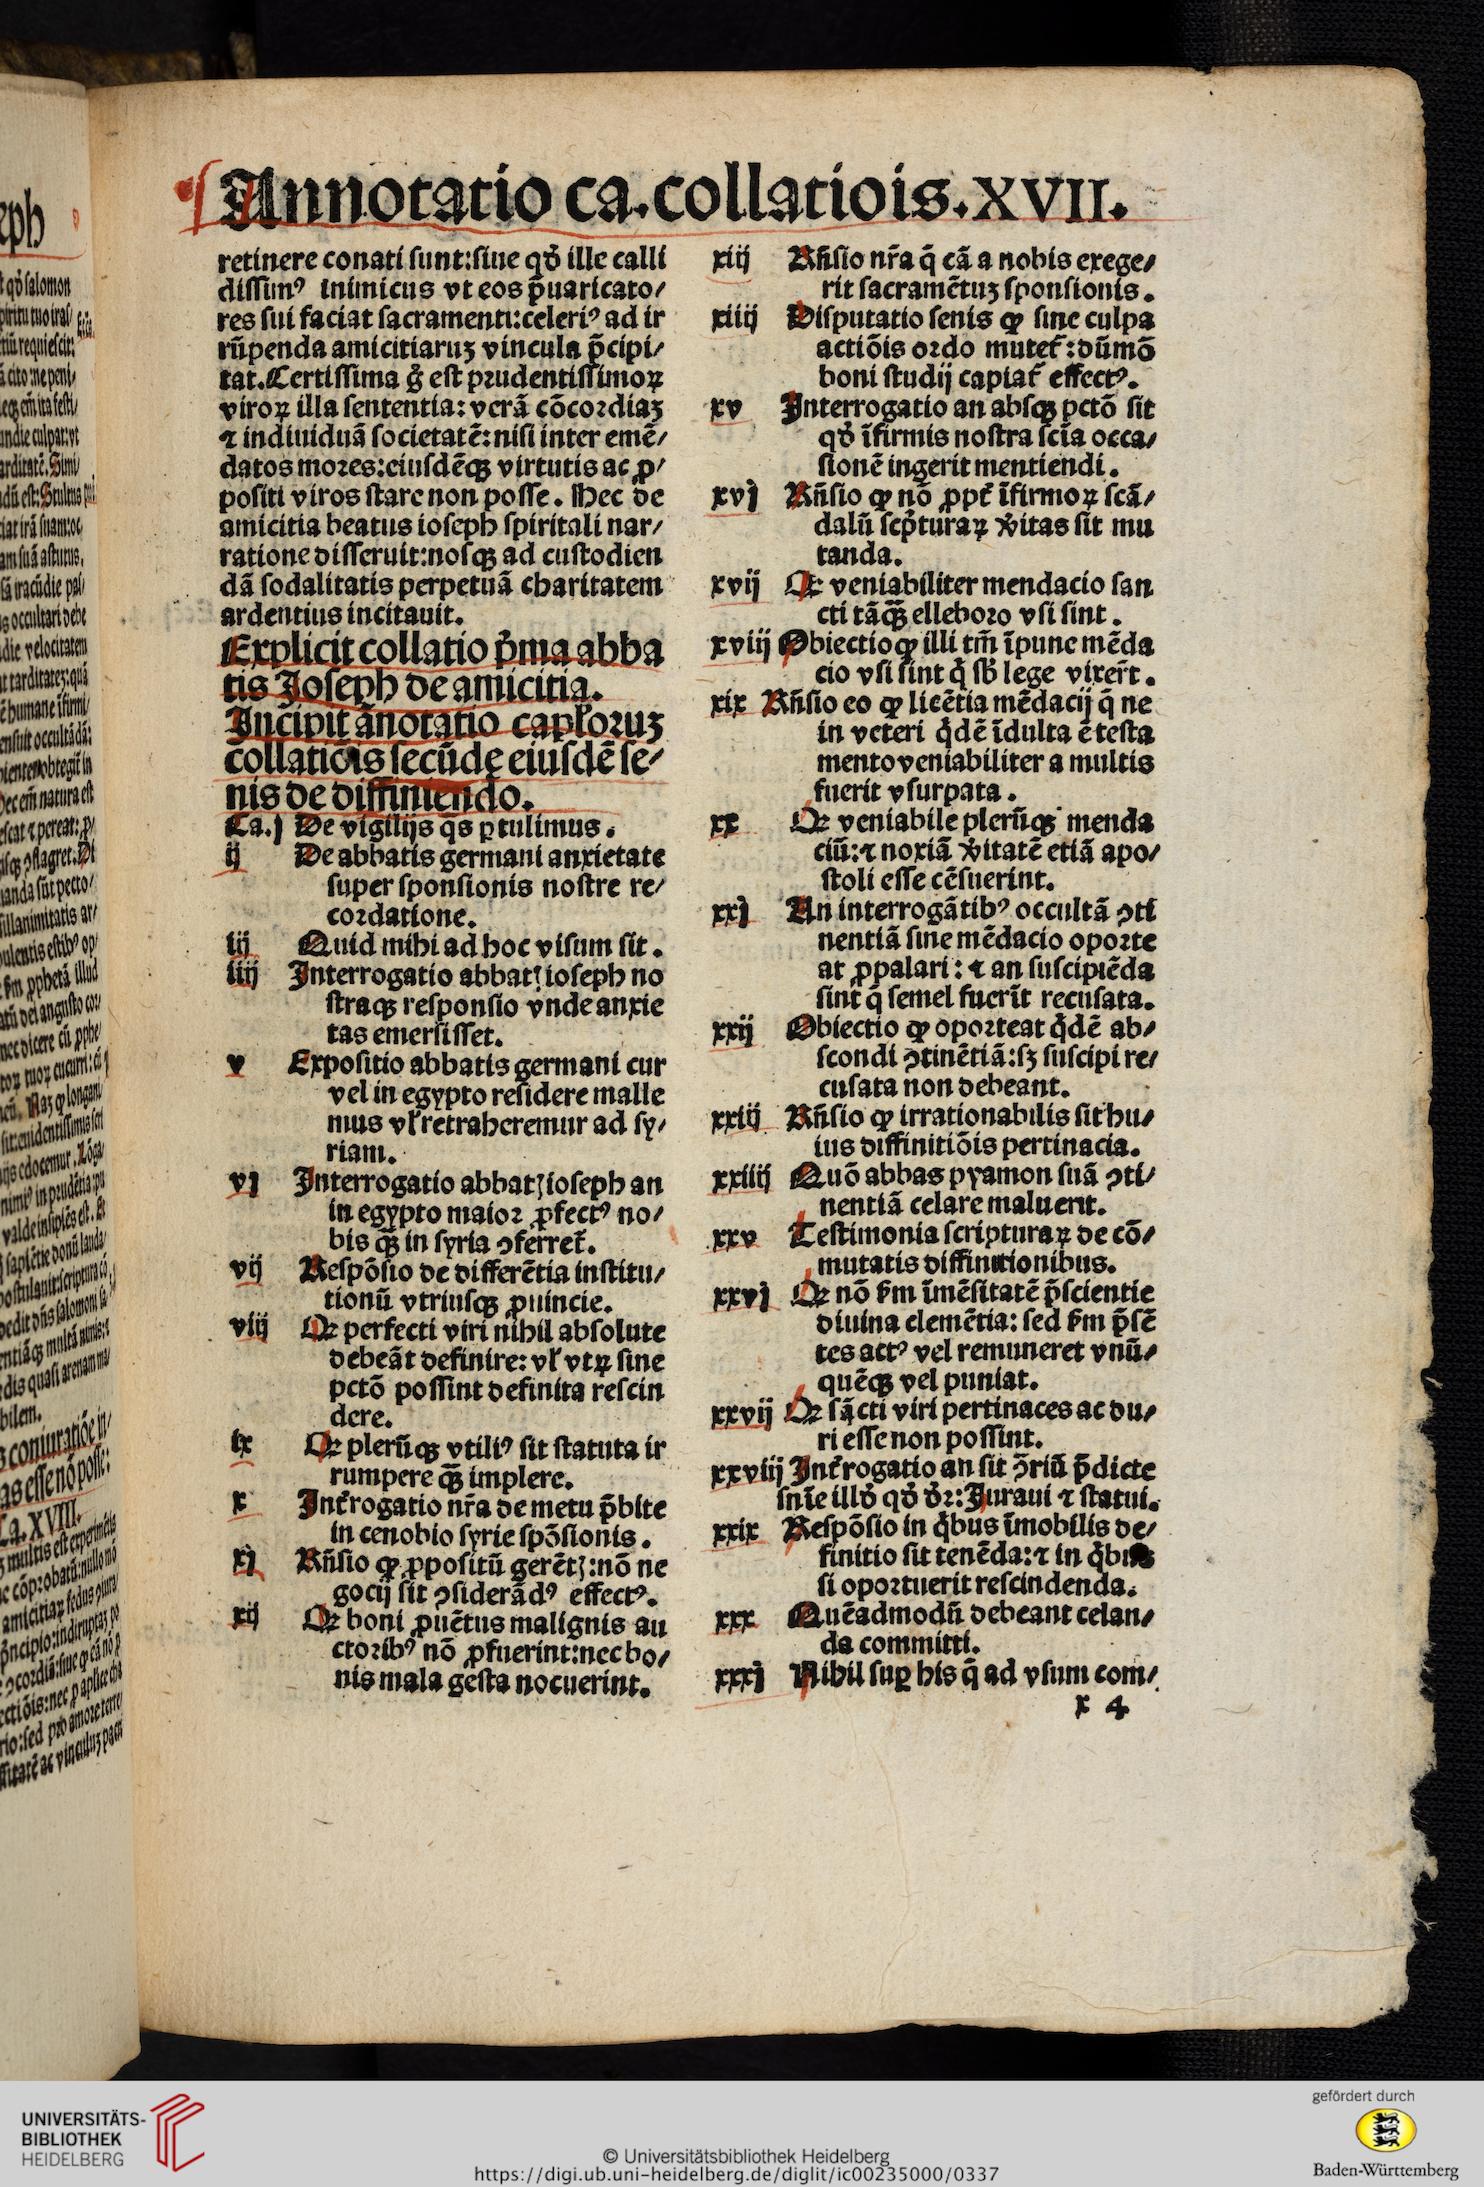 Annotatio ca.collatiois.XVII.
retinere conati sunt:siue qđ ille calli
dissimꝰ inimicus vt eos p̄uaricato/
res sui faciat sacramenti:celeriꝰ ad ir
rūpenda amicitiaruʒ vincula p̄cipi/
tat.Certissima g̊ est prudentissimoꝝ
viroꝝ illa sententia: verā cōcordiaʒ
⁊ indiuiduā societatē: nisi inter emē/
datos mores:eiusdēqʒ virtutis ac ꝓ/
positi viros stare non posse. Hec de
amicitia beatus ioseph spiritali nar/
ratione disseruit:nosqʒ ad custodien
dā sodalitatis perpetuā charitatem
ardentius incitauit.
Explicit collatio p̄ma abba
tis Joseph de amicitia.
Incipit ānotatio capl'oruʒ
collatiois secūde eiusdē se/
nis de diffiniendo.
Ca.j De vigilijs q̄s ꝑtulimus.
ij De abbatis germani anxietate
super sponsionis nostre re/
cordatione.
iij Quid mihi ad hoc visum sit.
iiij Interrogatio abbatꝭ ioseph no
straqʒ responsio vnde anxie
tas emersisset.
v Expositio abbatis germani cur
vel in egypto residere malle
mus vl' retraheremur ad sy/
riam.
vj Interrogatio abbatꝭ ioseph an
in egypto maior ꝓfectꝰ no/
bis qʒ̄ in syria ↄferret̄.
vij Respōsio de differētia institu/
tionū vtriusqʒ ꝓuincie.
viij Qꝛ perfecti viri nihil absolute
debeāt definire: vl' vtꝝ sine
pctō possint definita rescin
dere.
ix Qꝛ plerūqʒ vtiliꝰ sit statuta ir
rumpere qʒ̄ implere.
x Int̄rogatio nr̄a de metu p̄bite
in cenobio syrie spōsionis.
xj Rn̄sio ꝙ ꝓpositū gerētꝭ:nō ne
gocij sit ↄsiderādꝰ effectꝰ.
xij Qꝛ boni ꝓuētus malignis au
ctoribꝰ nō ꝓfuerint:nec bo/
nis mala gesta nocuerint.
xiij Rn̄sio nr̄a q̄ eā a nobis exege/
rit sacramētuʒ sponsionis.
xiiij Disputatio senis ꝙ sine culpa
actiōis ordo mutet̄:dūmō
boni studij capiat̄ effectꝰ.
xv Interrogatio an absqʒ pctō sit
qđ īfirmis nostra scīa occa/
sionē ingerit mentiendi.
xvj Rn̄sio ꝙ nō ꝓpt̄ īfirmoꝝ scā/
dalū sc̄pturaꝝ v̄itas sit mu
tanda.
xvij Qꝛ veniabiliter mendacio san
cti tāqʒ̄ elleboro vsi sint.
xviij Obiectio ꝙ illi tm̄ īpune mēda
cio vsi sint q̇ sb̄ lege vixer̄t.
xix Rn̄sio eo ꝙ licētia mēdacij q̄ ne
in veteri q̇dē īdulta ē testa
mento veniabiliter a multis
fuerit vsurpata.
xx Qꝛ veniabile plerūqʒ menda
ciū:⁊ noxiā v̄itatē etiā apo/
stoli esse cēsuerint.
xxj An interrogātibꝰ occultā ↄti
nentiā sine mēdacio oporte
at ꝓpalari: ⁊ an suscipiēda
sint q̄ semel fuerīt recusata.
xxij Obiectio ꝙ oporteat q̇dē ab/
scondi ↄtinētiā:sʒ suscipi re/
cusata non debeant.
xxiij Rn̄sio ꝙ irrationabilis sit hu/
ius diffinitiōis pertinacia.
xxiiij Quō abbas pyamon suā ↄti/
nentiā celare maluerit.
xxv Testimonia scripturaꝝ de cō/
mutatis diffinitionibus.
xxvj Qꝛ nō ẜm īmēsitatē p̄scientie
diuina clemētia: sed ẜm p̄sē
tes actꝰ vel remuneret vnū/
quēqʒ vel puniat.
xxvij Qꝛ sācti viri pertinaces ac du/
ri esse non possint.
xxviij Int̄rogatio an sit ↄ̄riū p̄dicte
sn̄īe illđ qđ đꝛ:Juraui ⁊ statui.
xxix Respōsio in q̇bus īmobilis de/
finitio sit tenēda:⁊ in q̇bus
si oportuerit rescindenda.
xxx Quēadmodū debeant celan/
da committi.
xxxj Nihil suꝑ his q̄ ad vsum com/
x 4
UNIVERSITÄTS-
BIBLIOTHEK
HEIDELBERG
© Universitätsbibliothek Heidelberg
https://digi.ub.uni-heidelberg.de/diglit/ic00235000/0337
gefördert durch
Baden-Württemberg